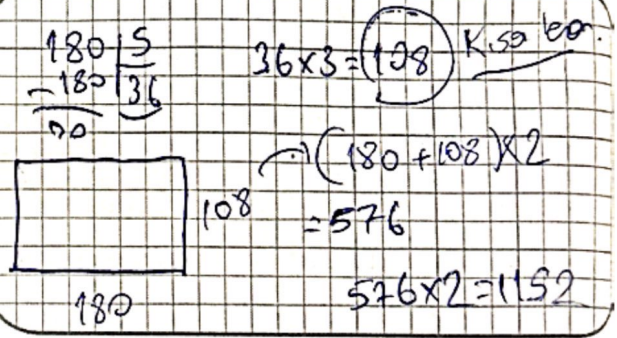 180 | 5
- 180 | 36
00
36x3 = 108 Kısa ken.
(180 + 108)x2
= 576
108
180
576x2=1152